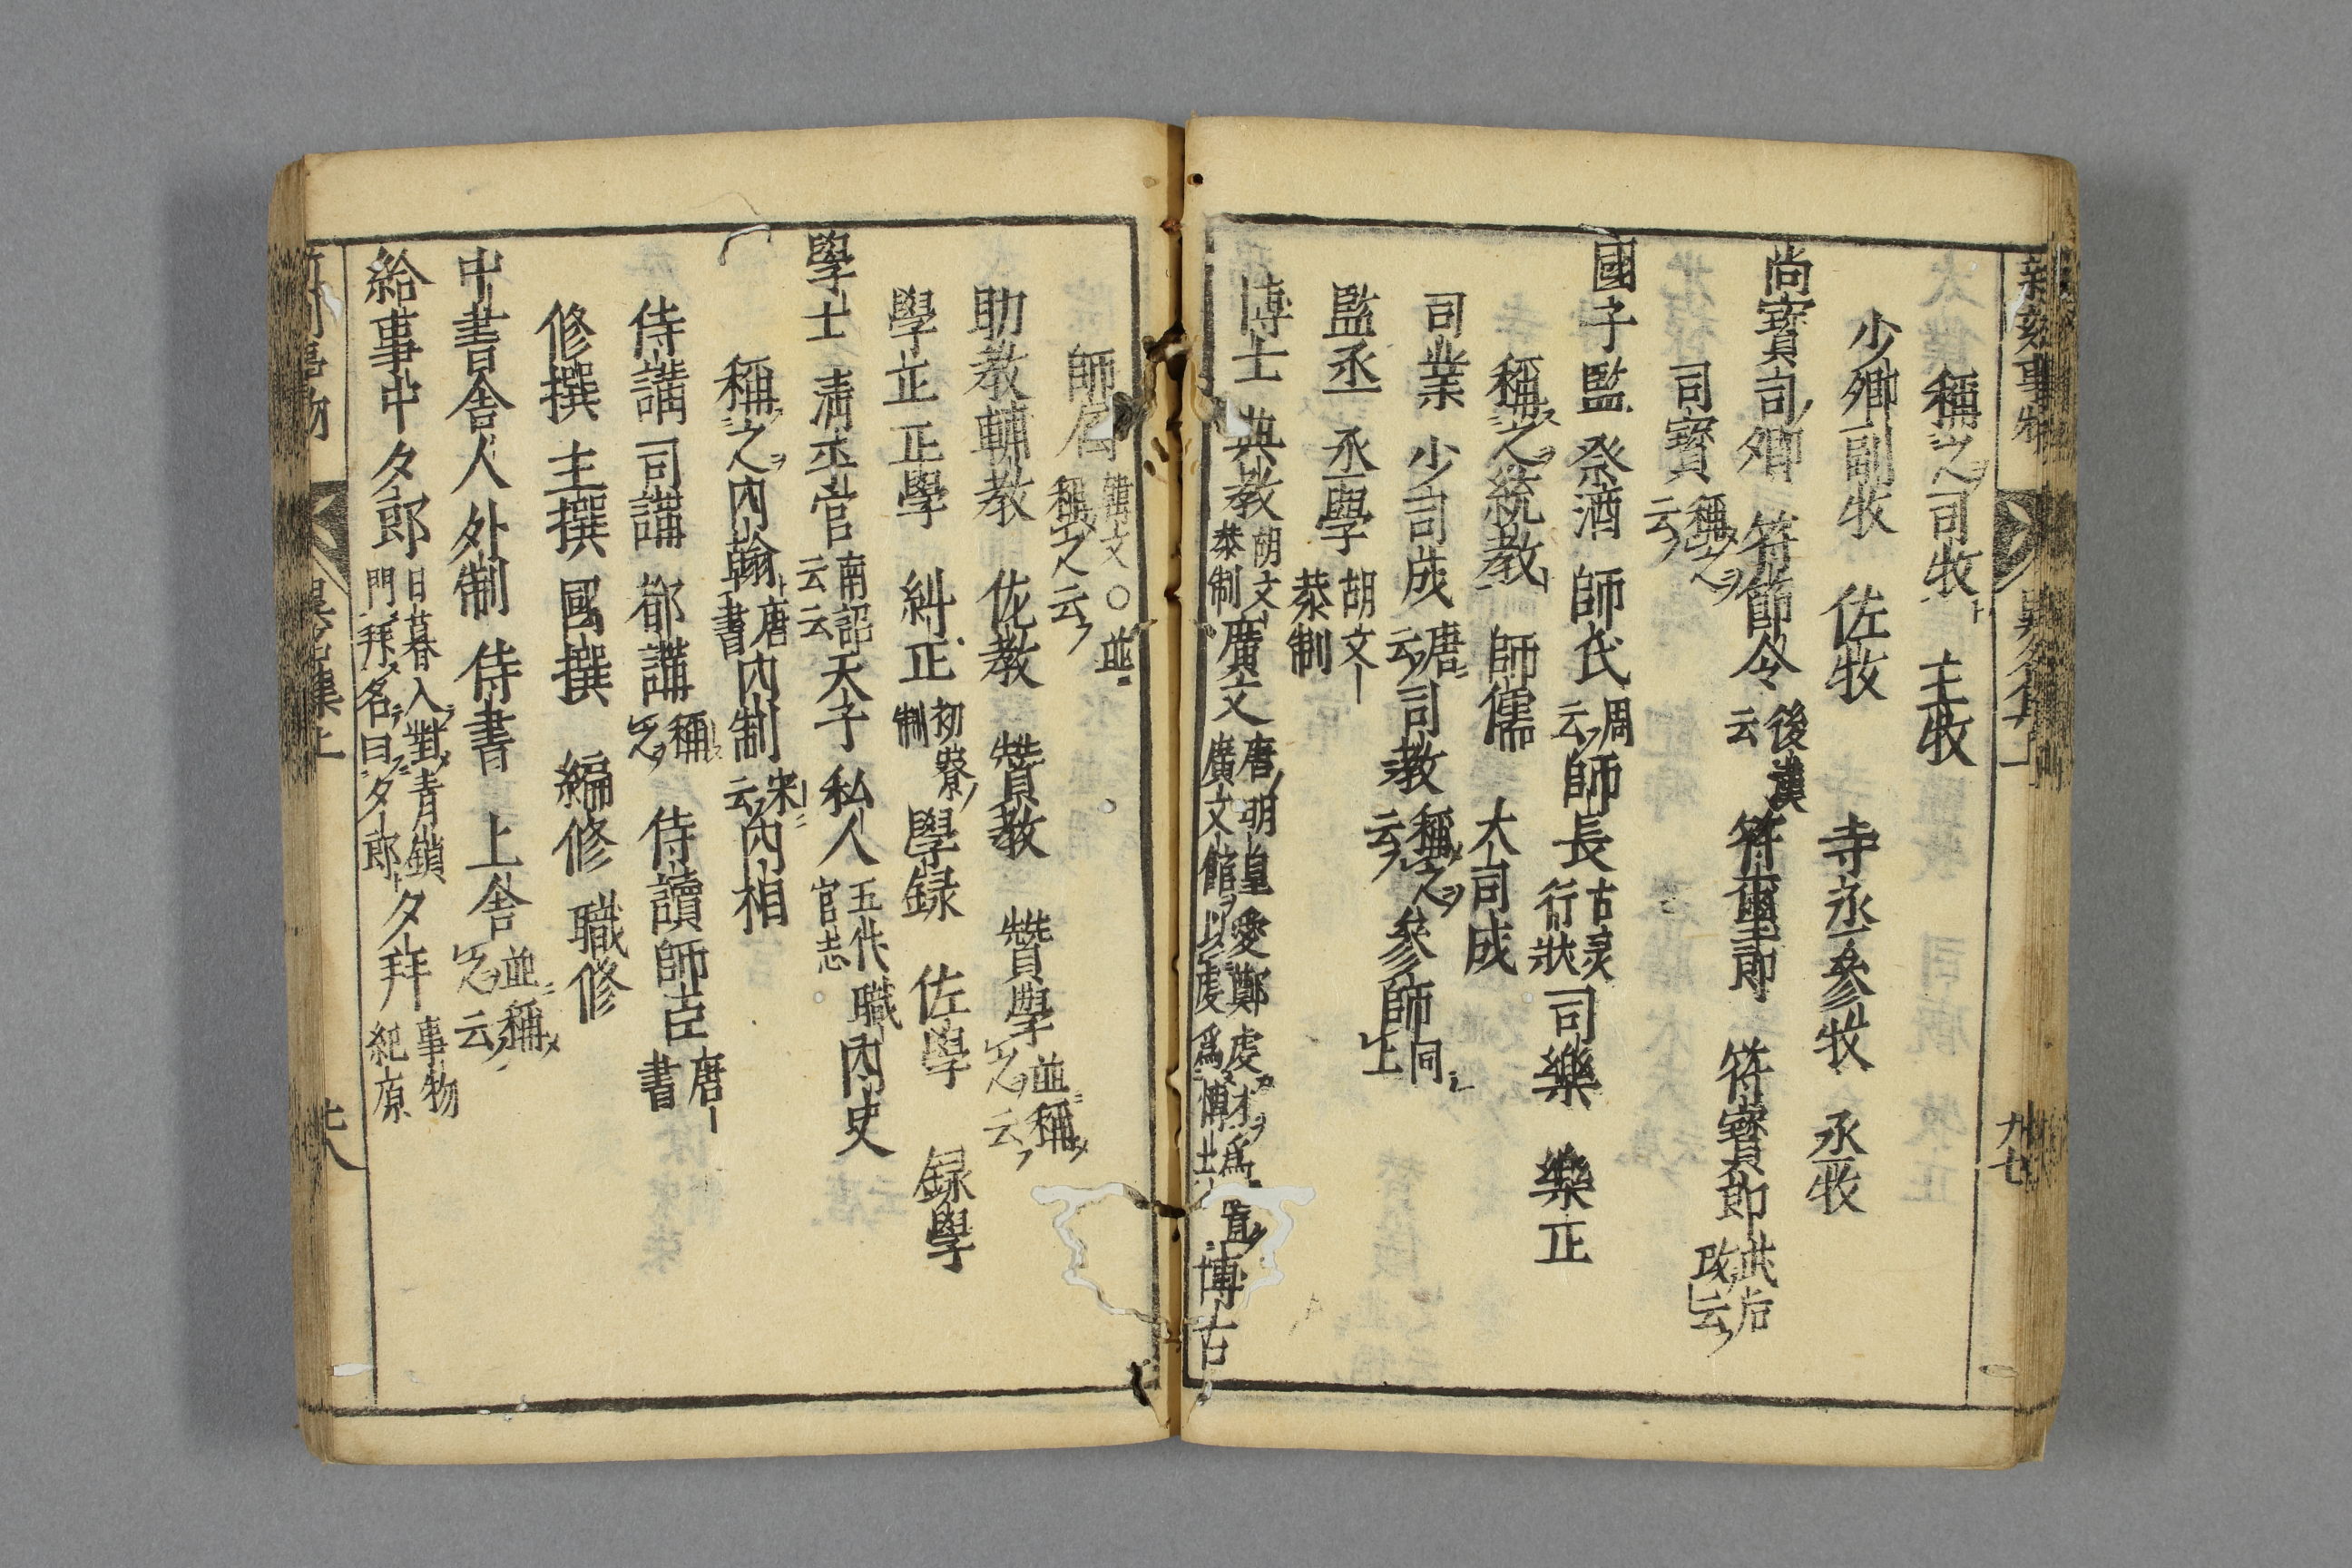 新刻事物異名集上
九七
稱之司牧 主牧
少卿副牧 佐牧 寺丞參牧 丞牧
尚寶司卿 符節令後漢云符璽郎 符寶郎武后改云
司寳稱之云
國子監祭酒 師氏周云師長古灵行状司樂 樂正
稱之統教 師儒 大司成
司業 少司成唐云司教稱之云參師同上
監丞 丞學胡文恭制
博士 典教胡文恭制廣文唐明皇愛鄭虔才爲置廣文館以虔爲博士 博古
師 韓文○並稱之云
助教輔教 佐教 贊教 贊學並稱之云
學正 正學 糾正初寮制學録 佐學 録學
學士 淸丕官南詔云云天子私人五代職官志内史
稱之内翰唐書内制宋云内相
侍講 司講 都講稱之 侍讀師臣唐書
修撰 主撰 國撰 編修 職修
中書舎人外制 侍書 上舎並稱之云
給事中夕郎日暮入對青鎖門拜名曰夕郎夕拜事物紀原
事物異名集上